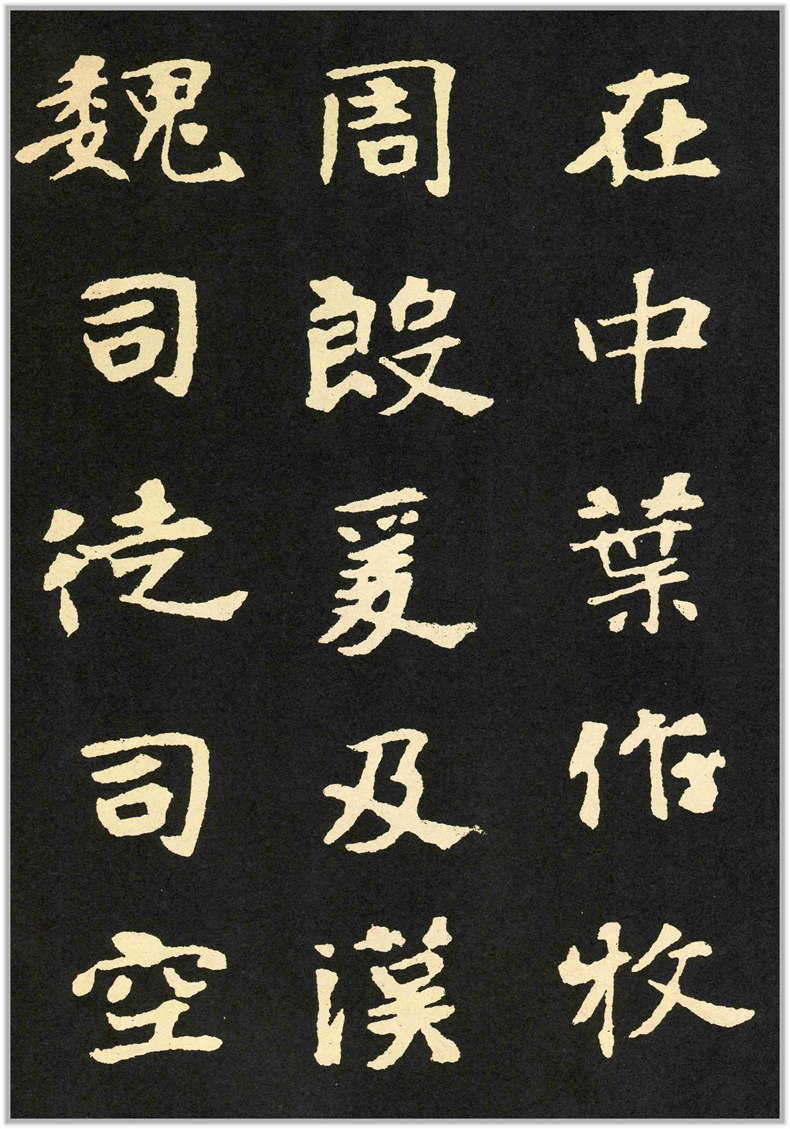 在中葉作牧
周殷爰及漢
魏司徒司空